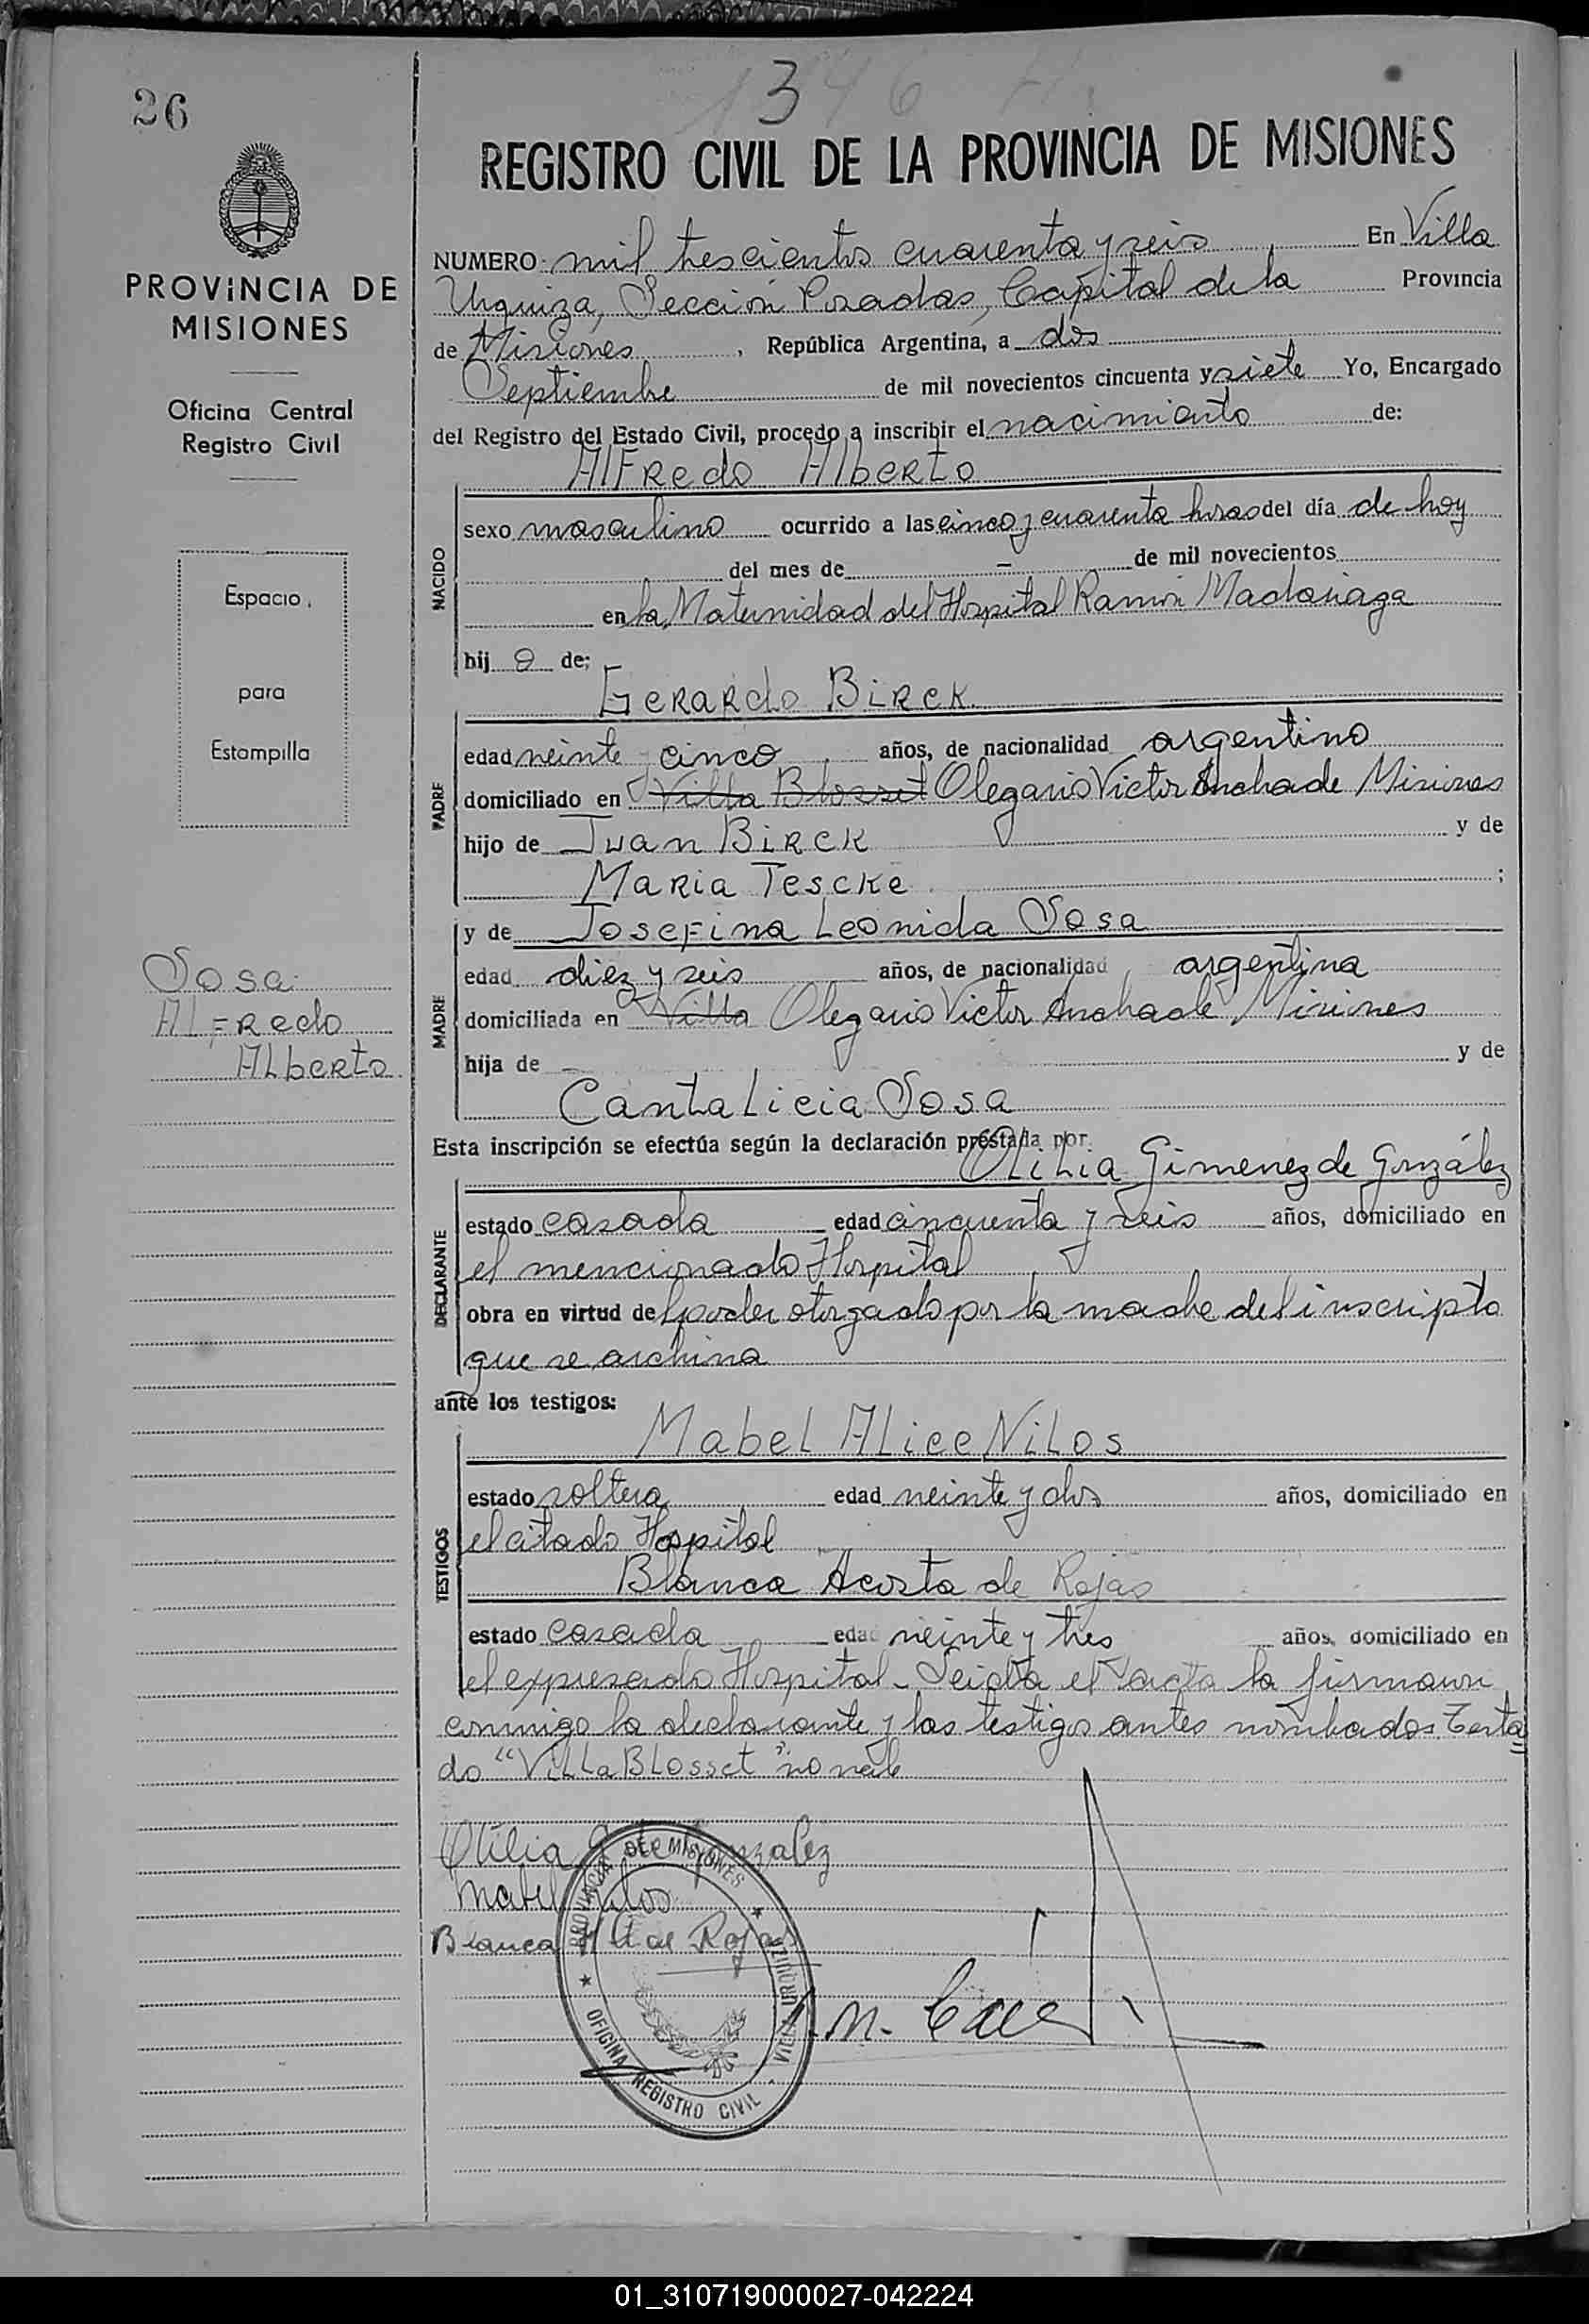 26
3
1346
REGISTRO CIVIL DE LA PROVINCIA DE MISIONES
PROVINCIA DE
MISIONES
Oficina Central
Registro Civil
Espacio
para
Estampilla
Sosa
ALFRedo
ALbeRto
NUMERO mil trescientos cuarenta y seis En Villa
Urquiza, Sección Posadas, Capital de la Provincia
de Misiones, República Argentina, a dos
Septiembre de mil novecientos cincuenta y siete Yo, Encargado
del Registro del Estado Civil, procedo a inscribir el nacimiento de:
AlFRedo AlbeRto
NACIDO
sexo masculino ocurrido a las cinco y cuarenta horas del día de hoy
del mes de - de mil novecientos
en la Maternidad del Hospital Ramón Madariaga
hij o de;
GeRARdo BiRcK
PADRE
edad veinte y cinco años, de nacionalidad argentino
domiciliado en Villa Blosset Olegario Victor Andrade Misiones
hijo de Juan BiRcK y de
MaRia Tescke ;
MADRE
y de JoseFina Leonida Sosa
edad diez y seis años, de nacionalidad argentina
domiciliada en Villa Olegario Victor Andrade, Misiones
hija de - y de
CantaLicia Sosa
Esta inscripción se efectúa según la declaración prestada por
OtiLia Gimenez de González
DECLARANTE
estado casada edad cincuenta y seis años, domiciliado en
el mencionado Hospital
obra en virtud del poder otorgado por la madre del inscripto
que se archiva
ante los testigos:
MabeL ALice NiLos
TESTIGOS
estado soltera edad veinte y dos años, domiciliado en
el citado Hospital
Blanca Acosta de Rojas
estado casada edad veinte y tres años, domiciliado en
el expresado Hospital - Leida el acta la firmaron
conmigo la declarante y los testigos antes nombrados. Testa=
do "ViLLa BLosset" no vale
Otilia G de Gonzalez
Mabel Nilos
Blanca A de Rojas
PROVINCIA DE MISIONES
VILLA URQUIZA
OFICINA REGISTRO CIVIL
01_310719000027-042224